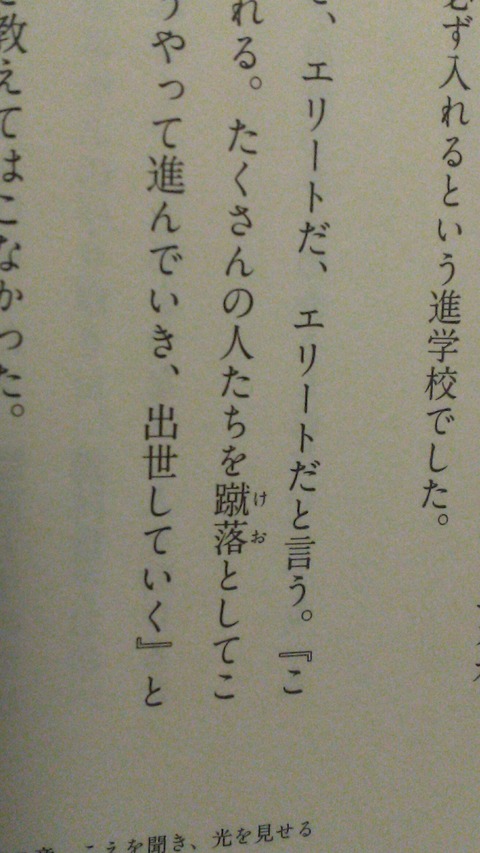 必ず入れるという進学校でした。
、エリートだ、エリートだと言う。『こ
れる。たくさんの人たちを蹴落としてこ
うやって進んでいき、出世していく』と
教えてはこなかった。
こえを聞き、光を見せる